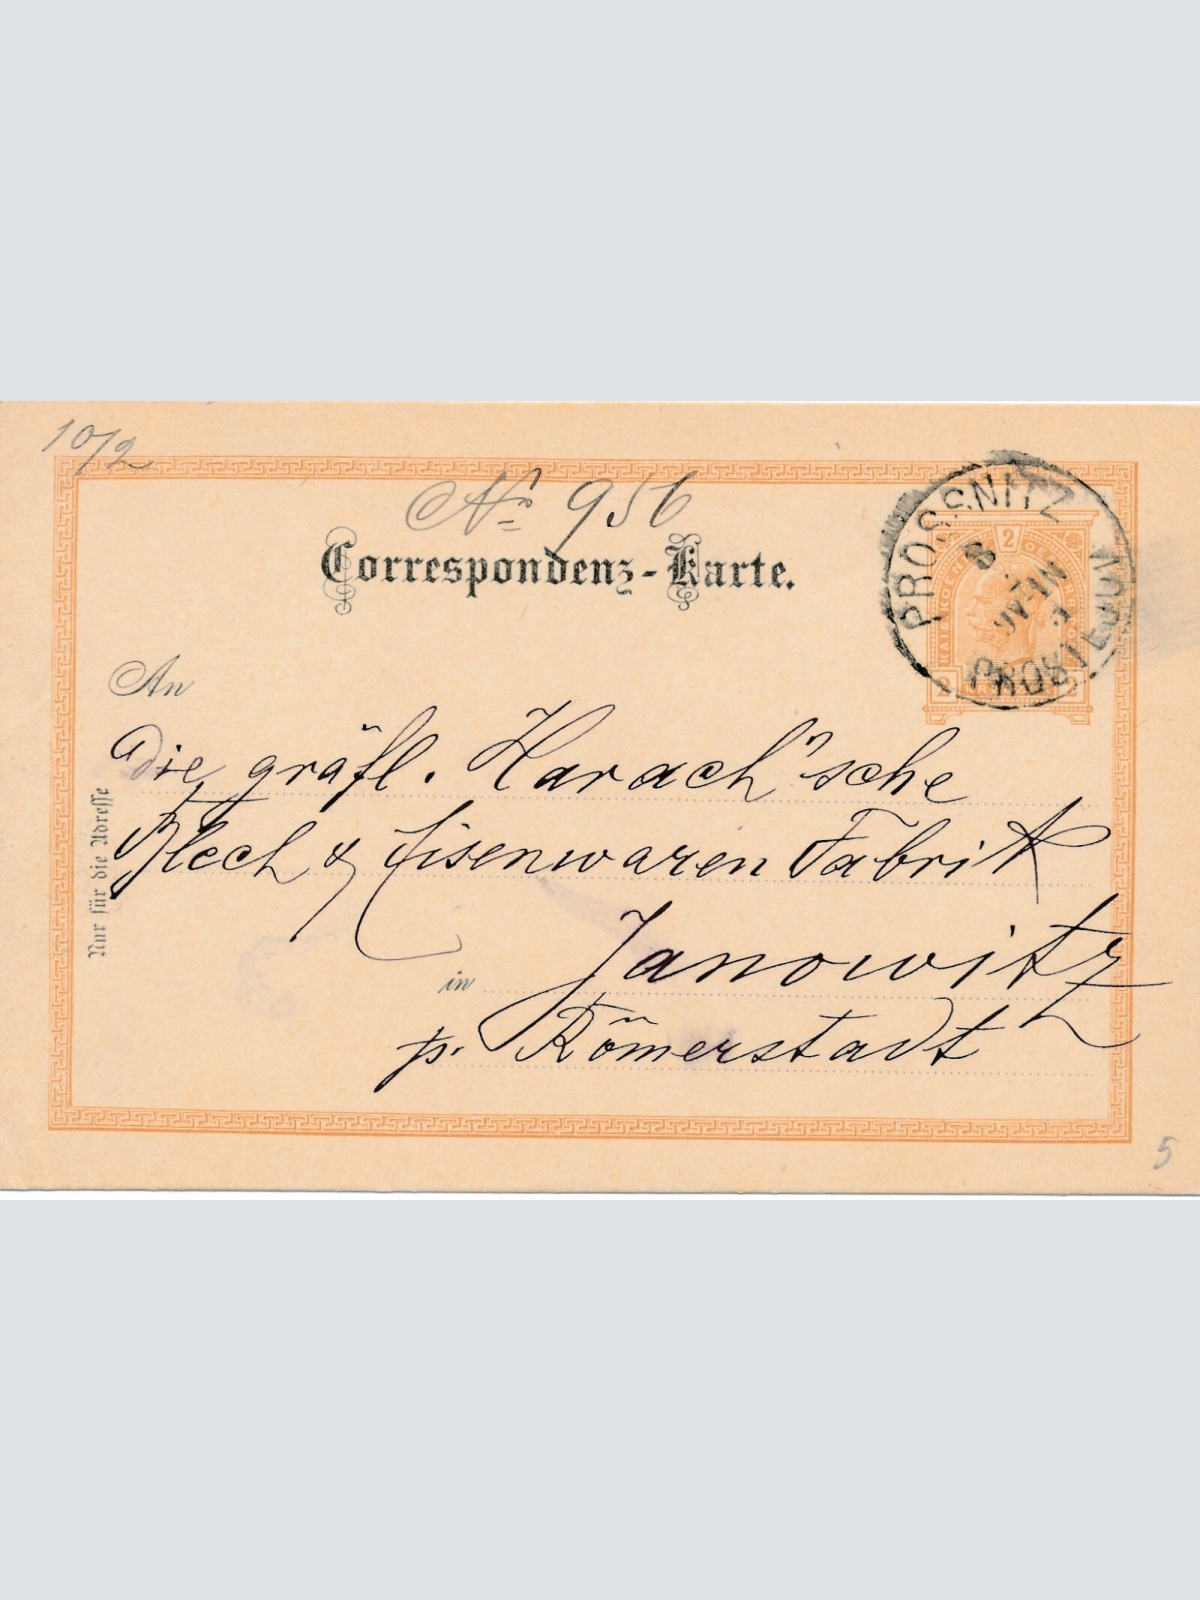 10/2
No 956
Correspondenz-Karte.
PROSSNITZ
8
PROSTĚJOV
2
KAIS KOEN OESTERR
2 2
An
die gräfl. Harach'sche
Blech & Eisenwaren Fabrik
in Janowitz
p. Römerstadt
Nur für die Adresse
5